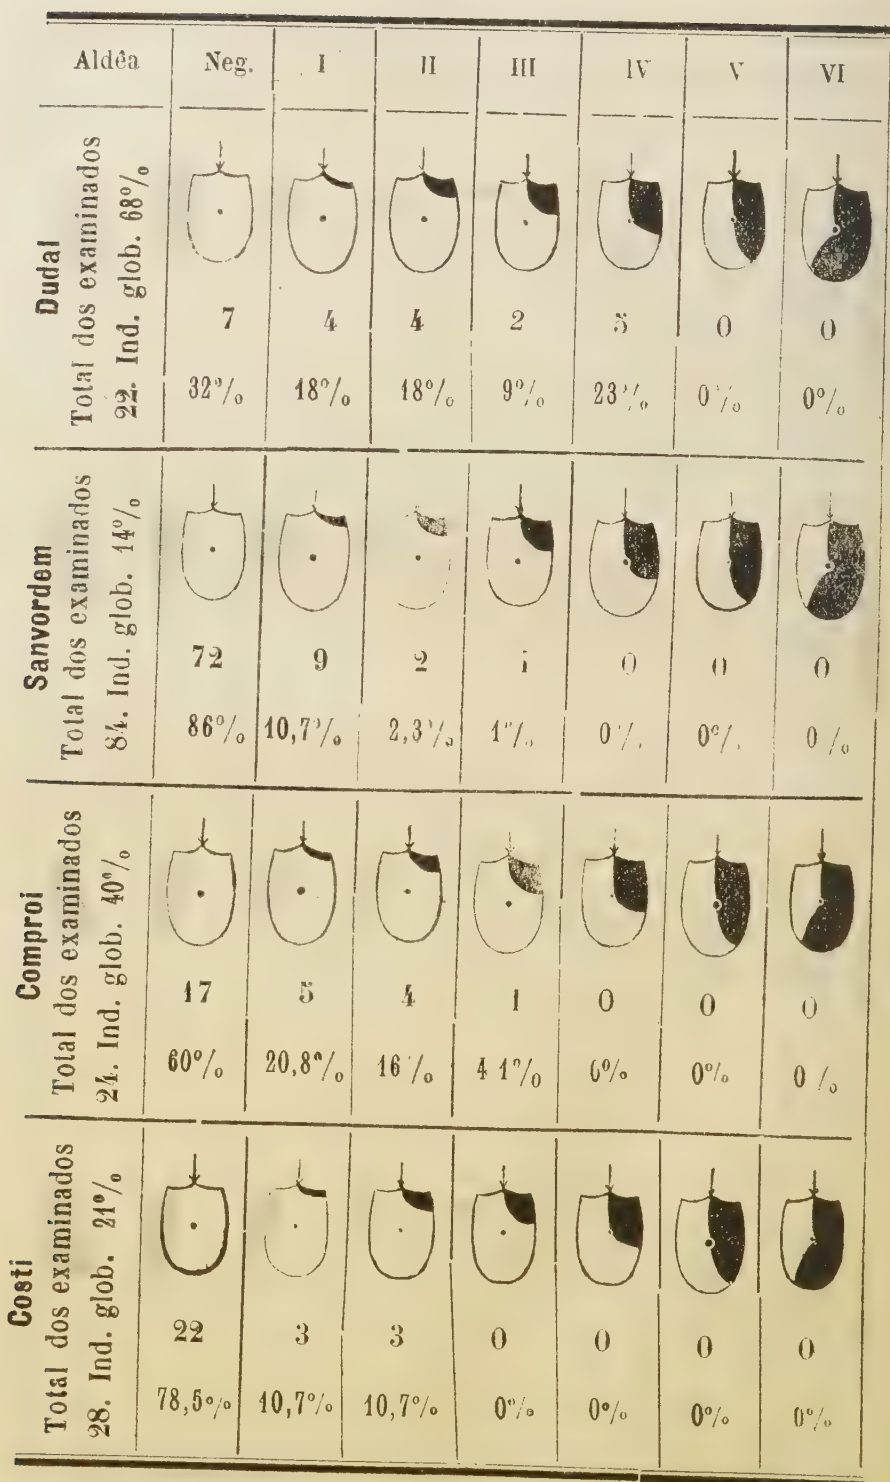 Aldêa Neg. I II III IV V VI
Dudal
Total dos examinados
22. Ind. glob. 68%
7 4 4 2 5 0 0
32% 18% 18% 9% 23% 0% 0%
Sanvordem
Total dos examinados
84. Ind. glob. 14%
72 9 2 1 0 0 0
86% 10,7% 2,3% 1% 0% 0% 0%
Comproi
Total dos examinados
24. Ind. glob. 40%
17 5 4 1 0 0 0
60% 20,8% 16% 4 1% 0% 0% 0%
Costi
Total dos examinados
28. Ind. glob. 21%
22 3 3 0 0 0 0
78,5% 10,7% 10,7% 0% 0% 0% 0%